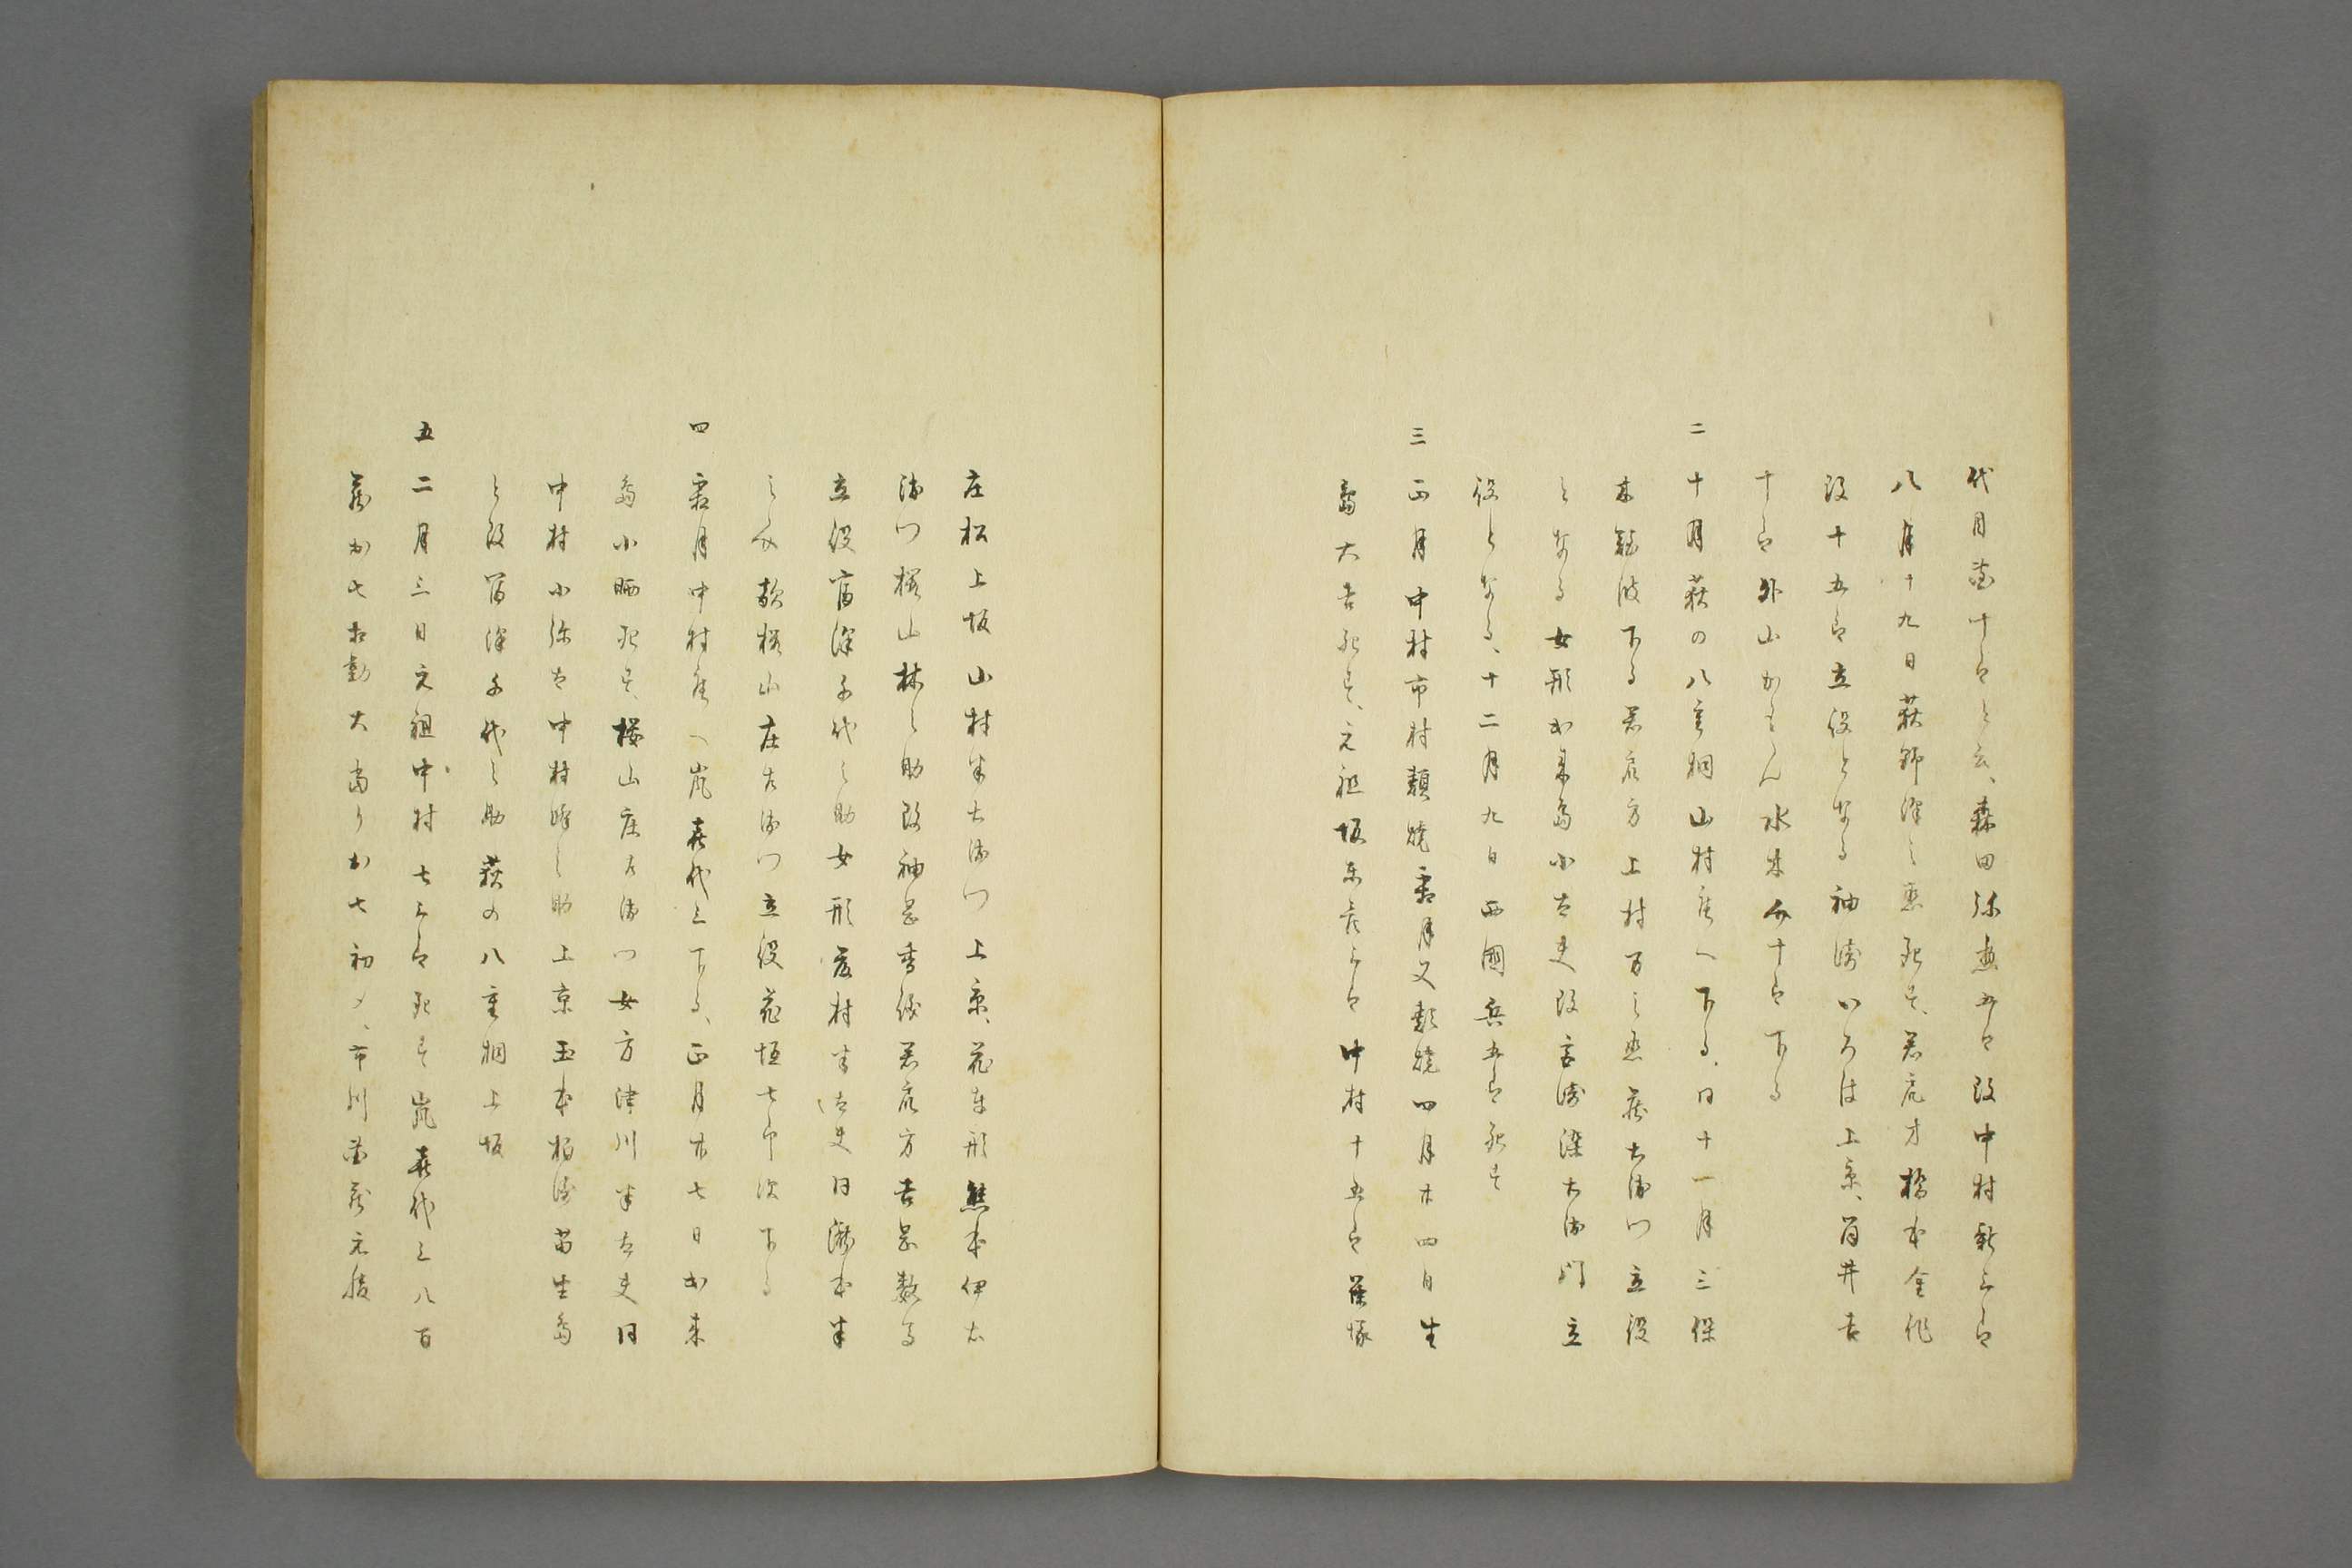 代目団十郎と云、森田弥惣五郎改中村新三郎
八月十九日荻野澤之丞死す、若衆方橋本金作
改十五郎立役となる袖崎いろは上京、筒井吉
十郎外山かもん水木竹十郎下る
二 十月荻の八重桐山村座へ下る、同十一月三保
木難波下る若衆方上村万之丞藤左衛門立役
となる女形出来島小太夫改宮崎染右衛門立
役となる、十二月九日西國兵五郎死す
三 正月中村市村類焼霜月又類焼四月廿四日生
島大吉死す、元祖坂東彦三郎中村十五郎藤塚
庄松上坂山村半右衛門上京、花車形熊本伊右
衛門桜山林之助改袖岡香織若衆方吉岡数馬
立役富澤千代之助女形霧村半太夫同瀧本半
之丞歌桜山庄左衛門立役花垣七郎次下る
四 霜月中村座へ嵐喜代三下る、正月廿七日出来
島小晒死す、桜山庄左衛門女方津川半太夫同
中村小弥太中村時之助上京玉本柏崎苗生島
と改富澤千代之助荻の八重桐上坂
五 二月三日元祖中村七三郎死す嵐喜代三八百
屋お七相勤大当りお七初メ、市川団蔵元服